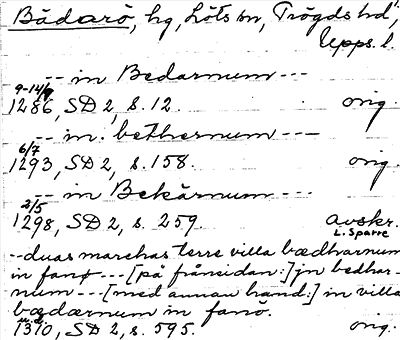 Bädarö, hg, Löts sn, Trögds hd,
Upps. l.
-- in Bedarnum ---
9-14/9
1286, SD 2, s. 12. orig.
-- in. bethernum ---
6/7
1293, SD 2, s. 158. orig.
-- in Bekärnum ---
2/5
1298, SD 2, s. 259. avskr.
L. Sparre
--duas marchas terre villa bædharnum
in fanø --- [på frånsidan:] jn bedhar-
num --- [med annan hand:] in villa
bøgdærnum in fanö.
1310, SD 2, s. 595. orig.